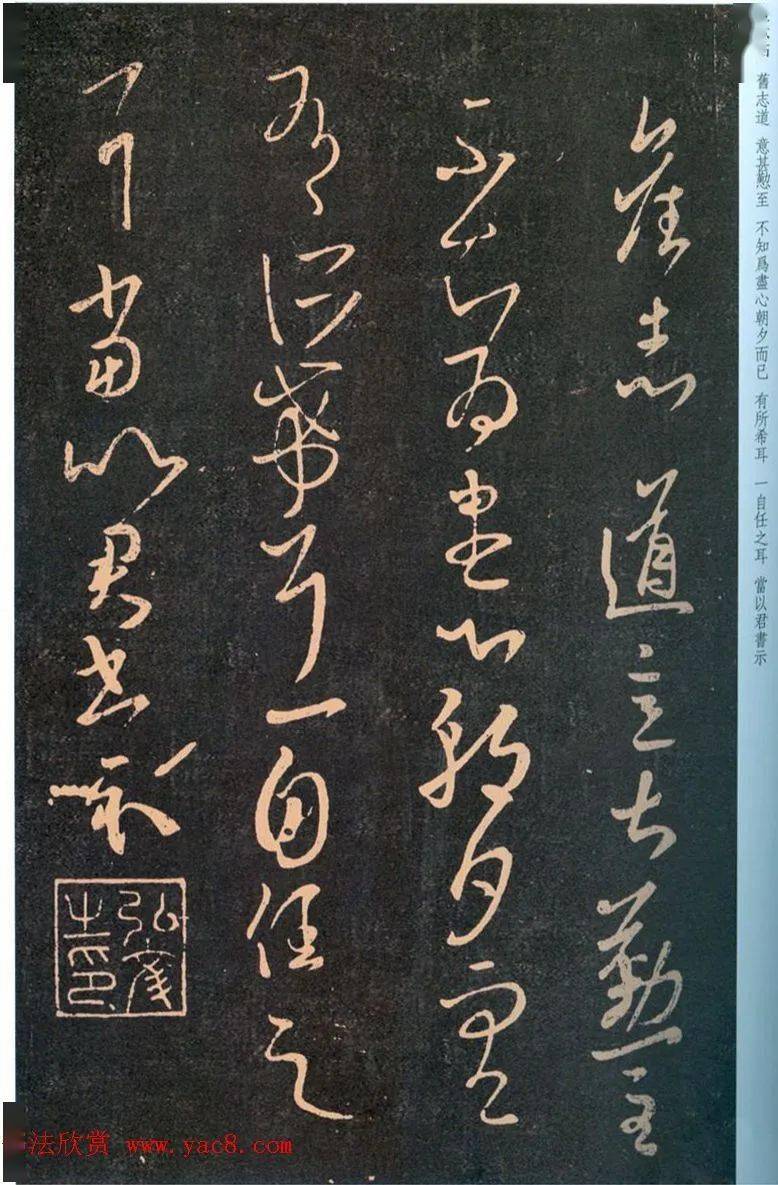 舊志道意甚懃至
不知爲盡心朝夕而已
有所希耳一自任之
耳當以君書示
舊志道 意甚懃至 不知爲盡心朝夕而已 有所希耳 一自任之耳 當以君書示
法欣赏 www.yac8.com